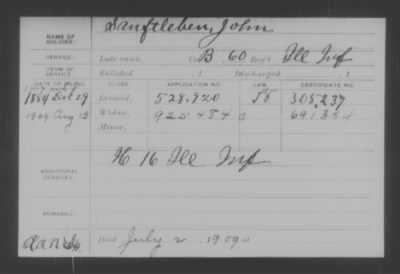 NAME OF SOLDIER: Sanftleben, John
SERVICE: Late rank, Co. B, 60 Reg't Ill Inf
TERM OF SERVICE: Enlisted , 1 Discharged , 1
DATE OF FILING. CLASS. APPLICATION NO. LAW. CERTIFICATE NO.
1884 Dec 29 Invalid, 528,920 305,237
1909 Aug 13 Widow, 925484
Minor,
ADDITIONAL SERVICES: H 16 Ill Inf
REMARKS:
Died July 2, 1909 at